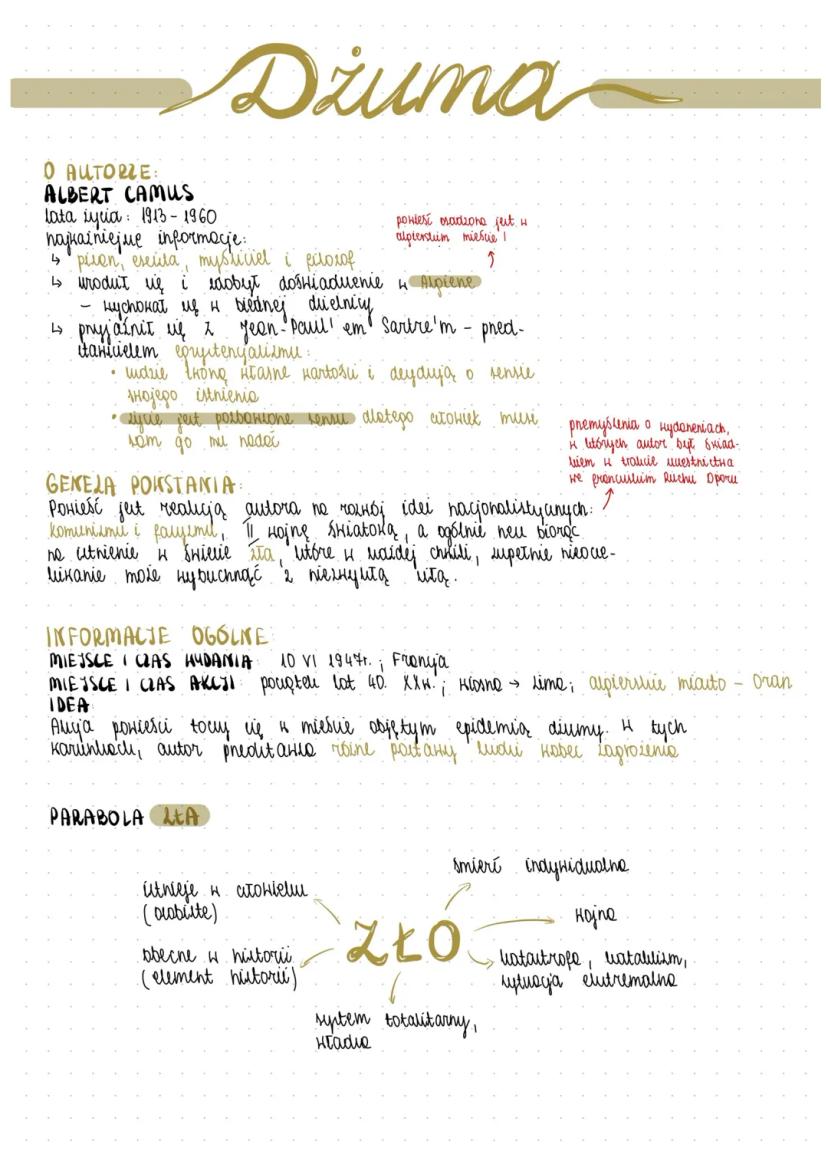 Dżuma
O AUTORZE:
ALBERT CAMUS
lata życia: 1913 - 1960
najważniejsze informacje:
powieść osadzona jest w
algierskim mieście!
↳ pisarz, eseista, myśliciel i filozof
↳ urodził się i zdobył doświadczenie w Algierze
- wychował się w biednej dzielnicy
↳ przyjaźnił się z Jean-Paul'em Sartre'm - przed-
stawicielem egzystencjalizmu:
• ludzie tworzą własne wartości i decydują o sensie
swojego istnienia
• życie jest pozbawione sensu dlatego człowiek musi
sam go mu nadać
przemyślenia o wydarzeniach,
w których autor był świad-
kiem w trakcie uczestnictwa
we francuskim Ruchu Oporu
GENEZA POWSTANIA:
Powieść jest reakcją autora na rozwój idei nacjonalistycznych:
komunizmu i faszyzmu, II wojnę światową, a ogólnie rzecz biorąc
na istnienie w świecie zła, które w każdej chwili, zupełnie nieocze-
kiwanie może wybuchnąć z niezwykłą siłą.
INFORMACJE OGÓLNE
MIEJSCE I CZAS WYDANIA: 10 VI 1947r. ; Francja
MIEJSCE I CZAS AKCJI: początek lat 40. XXw. ; wiosna → zima; algierskie miasto - Oran
IDEA:
Akcja powieści toczy się w mieście objętym epidemią dżumy. W tych
warunkach, autor przedstawia różne postawy ludzi wobec zagrożenia
PARABOLA ZŁA
śmierć indywidualna
istnieje w człowieku
(osobiste)
wojna
ZŁO
obecne w historii
(element historii)
katastrofa, kataklizm,
sytuacja ekstremalna
system totalitarny,
władza